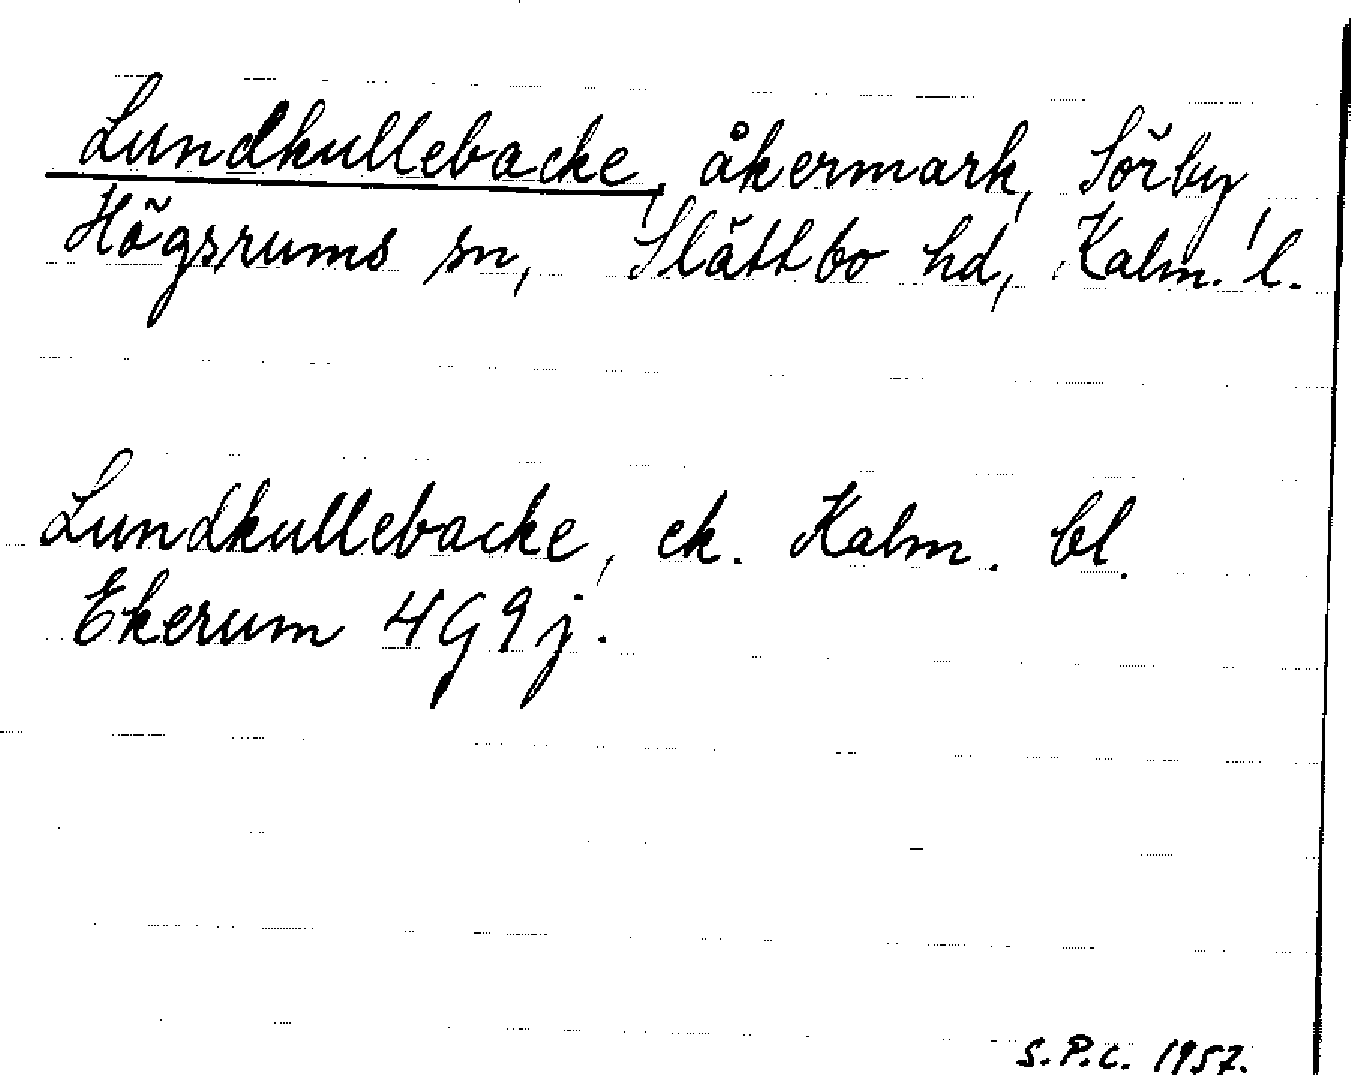 Lundkullebacke, åkermark, Sörby
Högsrums sn, Slättbo hd, Kalm. l.
Lundkullebacke, ek. Kalm. bl.
Ekerum 4G9j.
S.P.C. 1957.